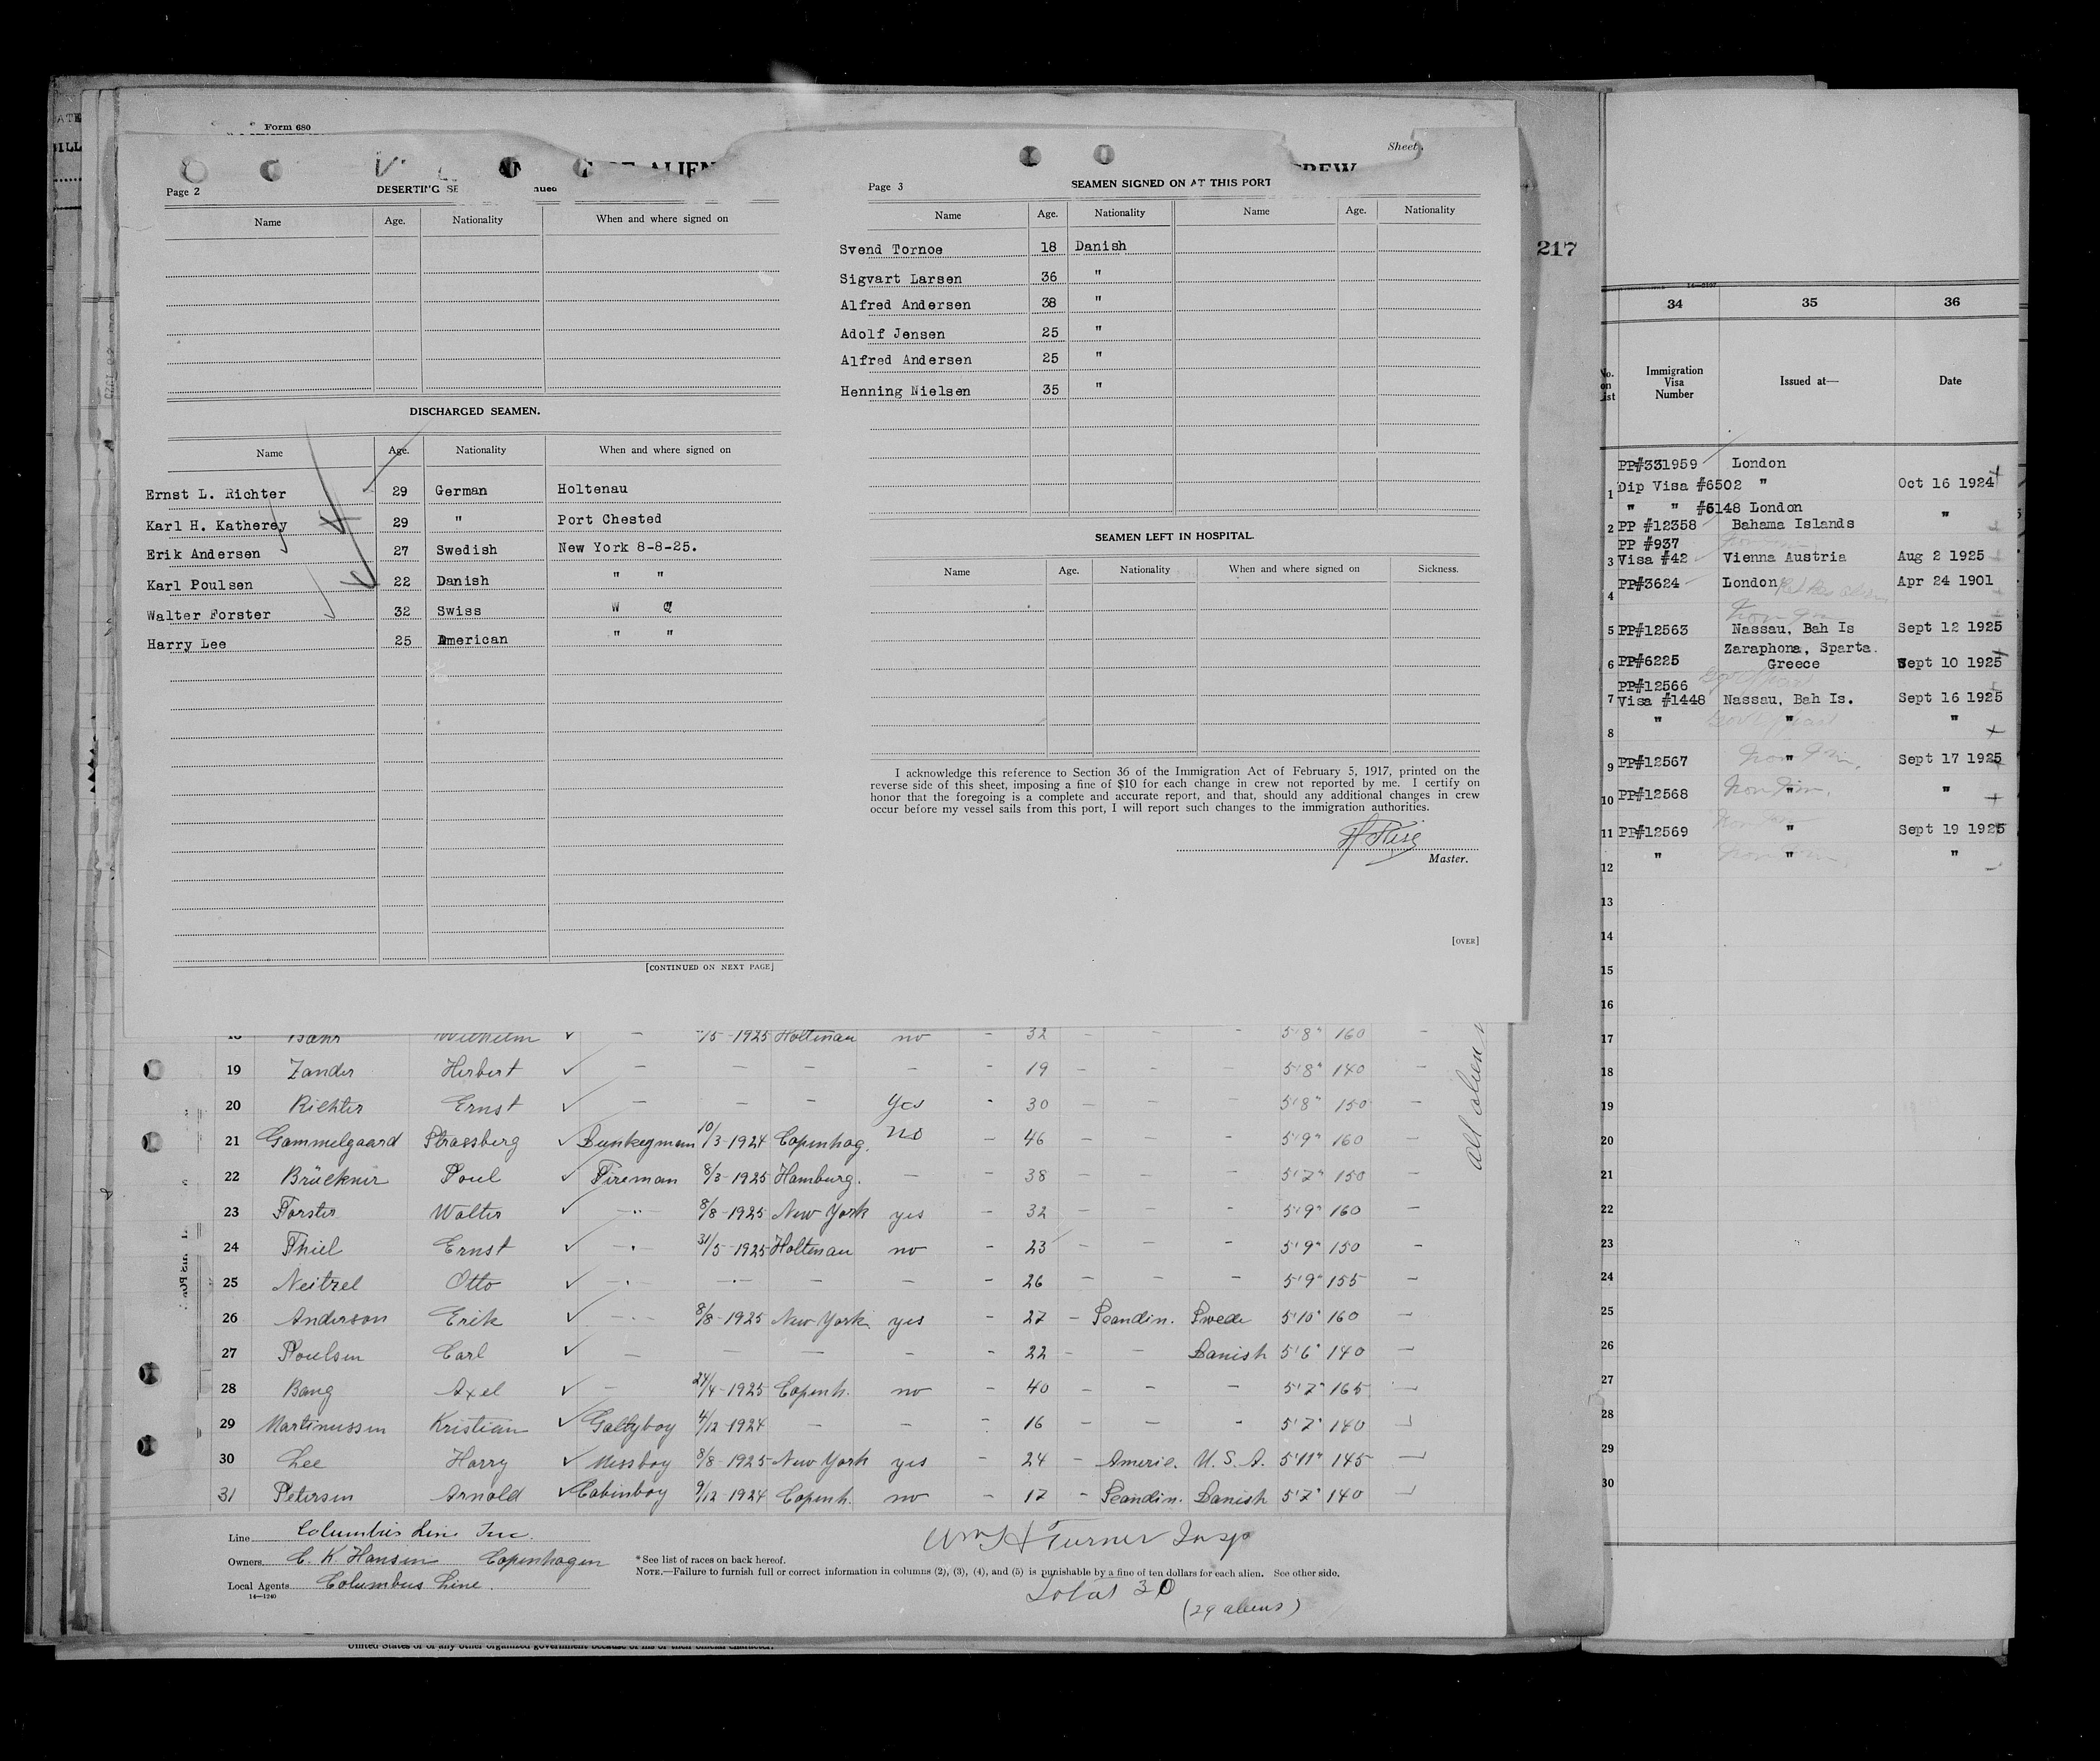 Form 680
Page 2
DESERTING SE
Name Age. Nationality When and where signed on
DISCHARGED SEAMEN.
Name Age. Nationality When and where signed on
Ernst L. Richter 29 German Holtenau
Karl H. Katherey 29 " Port Chested
Erik Andersen 27 Swedish New York 8-8-25.
Karl Poulsen 22 Danish " "
Walter Forster 32 Swiss
Harry Lee 25 American " "
[CONTINUED ON NEXT PAGE]
Sheet
Page 3
SEAMEN SIGNED ON AT THIS PORT
Name Age. Nationality Name Age. Nationality
Svend Tornoe 18 Danish
Sigvart Larsen 36 "
Alfred Andersen 38 "
Adolf Jensen 25 "
Alfred Andersen 25 "
Henning Nielsen 35 "
SEAMEN LEFT IN HOSPITAL.
Name Age. Nationality When and where signed on Sickness.
I acknowledge this reference to Section 36 of the Immigration Act of February 5, 1917, printed on the
reverse side of this sheet, imposing a fine of $10 for each change in crew not reported by me. I certify on
honor that the foregoing is a complete and accurate report, and that, should any additional changes in crew
occur before my vessel sails from this port, I will report such changes to the immigration authorities.
Master.
[OVER]
217
34 35 36
No. on List Immigration Visa Number Issued at— Date
PP#331959 London
1 Dip Visa #6502 " Oct 16 1924
" " #6148 London
2 PP #12358 Bahama Islands "
PP #937
3 Visa #42 Vienna Austria Aug 2 1925
4 PP#3624 London Apr 24 1901
5 PP#12563 Nassau, Bah Is Sept 12 1925
Zaraphona, Sparta.
6 PP#6225 Greece Sept 10 1925
PP#12566
7 Visa #1448 Nassau, Bah Is. Sept 16 1925
8 " " "
9 PP#12567 " Sept 17 1925
10 PP#12568 " "
11 PP#12569 " Sept 19 1925
12 " " "
13
14
15
16
17
18
19
20
21
22
23
24
25
26
27
28
29
30
Wilhelm ✓ — /5-1925 Holtenau no - 32 - - - 5'8" 160 -
19 Zander Herbert ✓ — — — — - 19 - - - 5'8" 140 -
20 Richter Ernst ✓ — — — yes - 30 - - - 5'8" 150 -
21 Gammelgaard Strassberg ✓ Dunkeyman 10/3-1924 Copenhag. no - 46 - - - 5'9" 160 -
22 Brückner Poul ✓ Fireman 8/3-1925 Hamburg. — - 38 - - - 5'7" 150 -
23 Forster Walter ✓ —"— 8/8-1925 New York yes - 32 - - - 5'9" 160 -
24 Thiel Ernst ✓ —"— 31/5-1925 Holtenau no - 23 - - - 5'9" 150 -
25 Neitzel Otto ✓ —"— —"— — — - 26 - - - 5'9" 155 -
26 Anderson Erik ✓ —"— 8/8-1925 New York yes - 27 - Scandin. Swede 5'10" 160 -
27 Poulsen Carl ✓ — — — - - 22 - - Danish 5'6" 140 -
28 Bang Axel ✓ — 24/4-1925 Copenh. no - 40 - - - 5'7" 165 -
29 Martinussen Kristian ✓ Galleyboy 4/12-1924 — — - 16 - - - 5'7" 140 -
30 Lee Harry ✓ Messboy 8/8-1925 New York yes - 24 - Americ. U.S.A. 5'11" 145 -
31 Petersen Arnold ✓ Cabinboy 9/12-1924 Copenh. no - 17 - Scandin. Danish 5'7" 140 -
all alien
Line Columbus Line Inc.
Owners C. K. Hansen Copenhagen
Local Agents Columbus Line.
14—1240
Wm H Turner Insp
*See list of races on back hereof.
NOTE.—Failure to furnish full or correct information in columns (2), (3), (4), and (5) is punishable by a fine of ten dollars for each alien. See other side.
Total 30
(29 aliens)
United States or of any other organized government because of his or their official character.